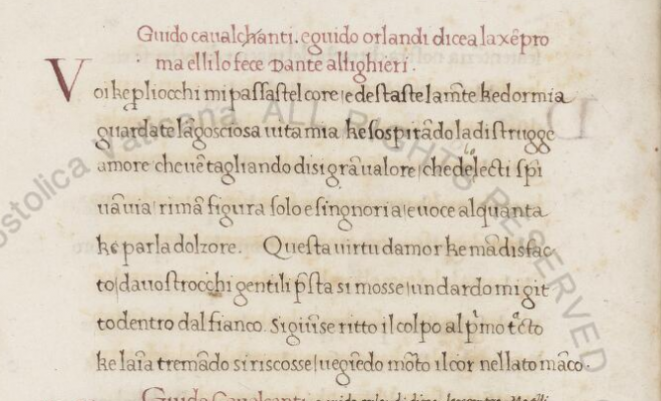 Guido caualchanti. eguido orlandi dicea laxẽpro
ma ellilo fece Dante allighieri.
Voi ke ꝑliocchi mi passastel core / e destaste lamẽte kedormia
guardate lãgosciosa uita mia ke sospirãdo la distrugge
amore che uẽ tagliando disi grã ualore / che deboletti spi
uãuia / rimã figura solo e singnoria / e uoce alquanta
ke parla dolzore. Questa uirtu damor ke mã disfac
to / dauostrocchi gentili p̃sta si mosse / un dardo mi git
to dentro dal fianco. Sigiũse ritto il colpo al pͥmo tᵃcto
ke laĩa tremãdo si riscosse / uegiẽdo moto il cor nellato mãco.
Guido Caualcanti
Apostolica Vaticana ALL RIGHTS RESERVED